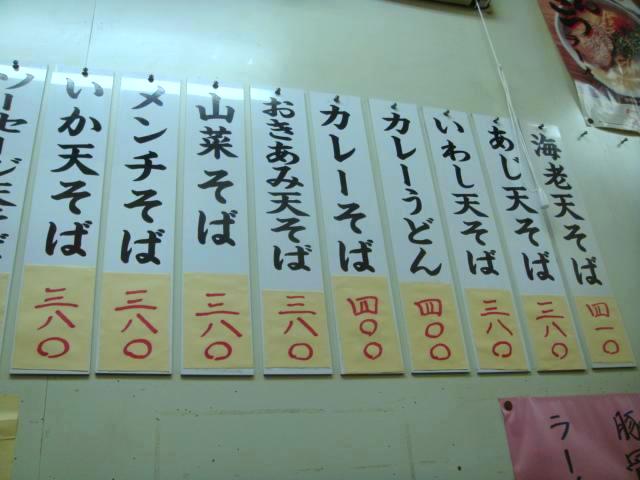 海老天そば
四一〇
あじ天そば
三八〇
いわし天そば
三八〇
カレーうどん
四〇〇
カレーそば
四〇〇
おきあみ天そば
三八〇
山菜そば
三八〇
メンチそば
三八〇
いか天そば
三八〇
ソーセージ天そば
豚
ラー